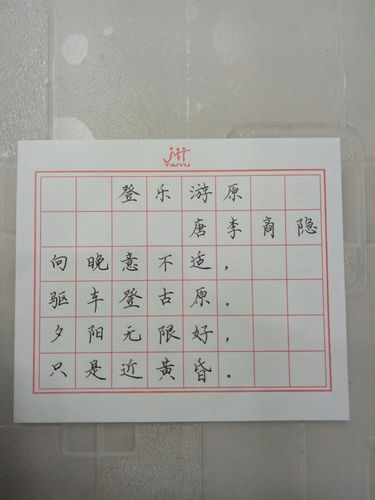 TAIYU
登乐游原
唐李商隐
向晚意不适，
驱车登古原。
夕阳无限好，
只是近黄昏。